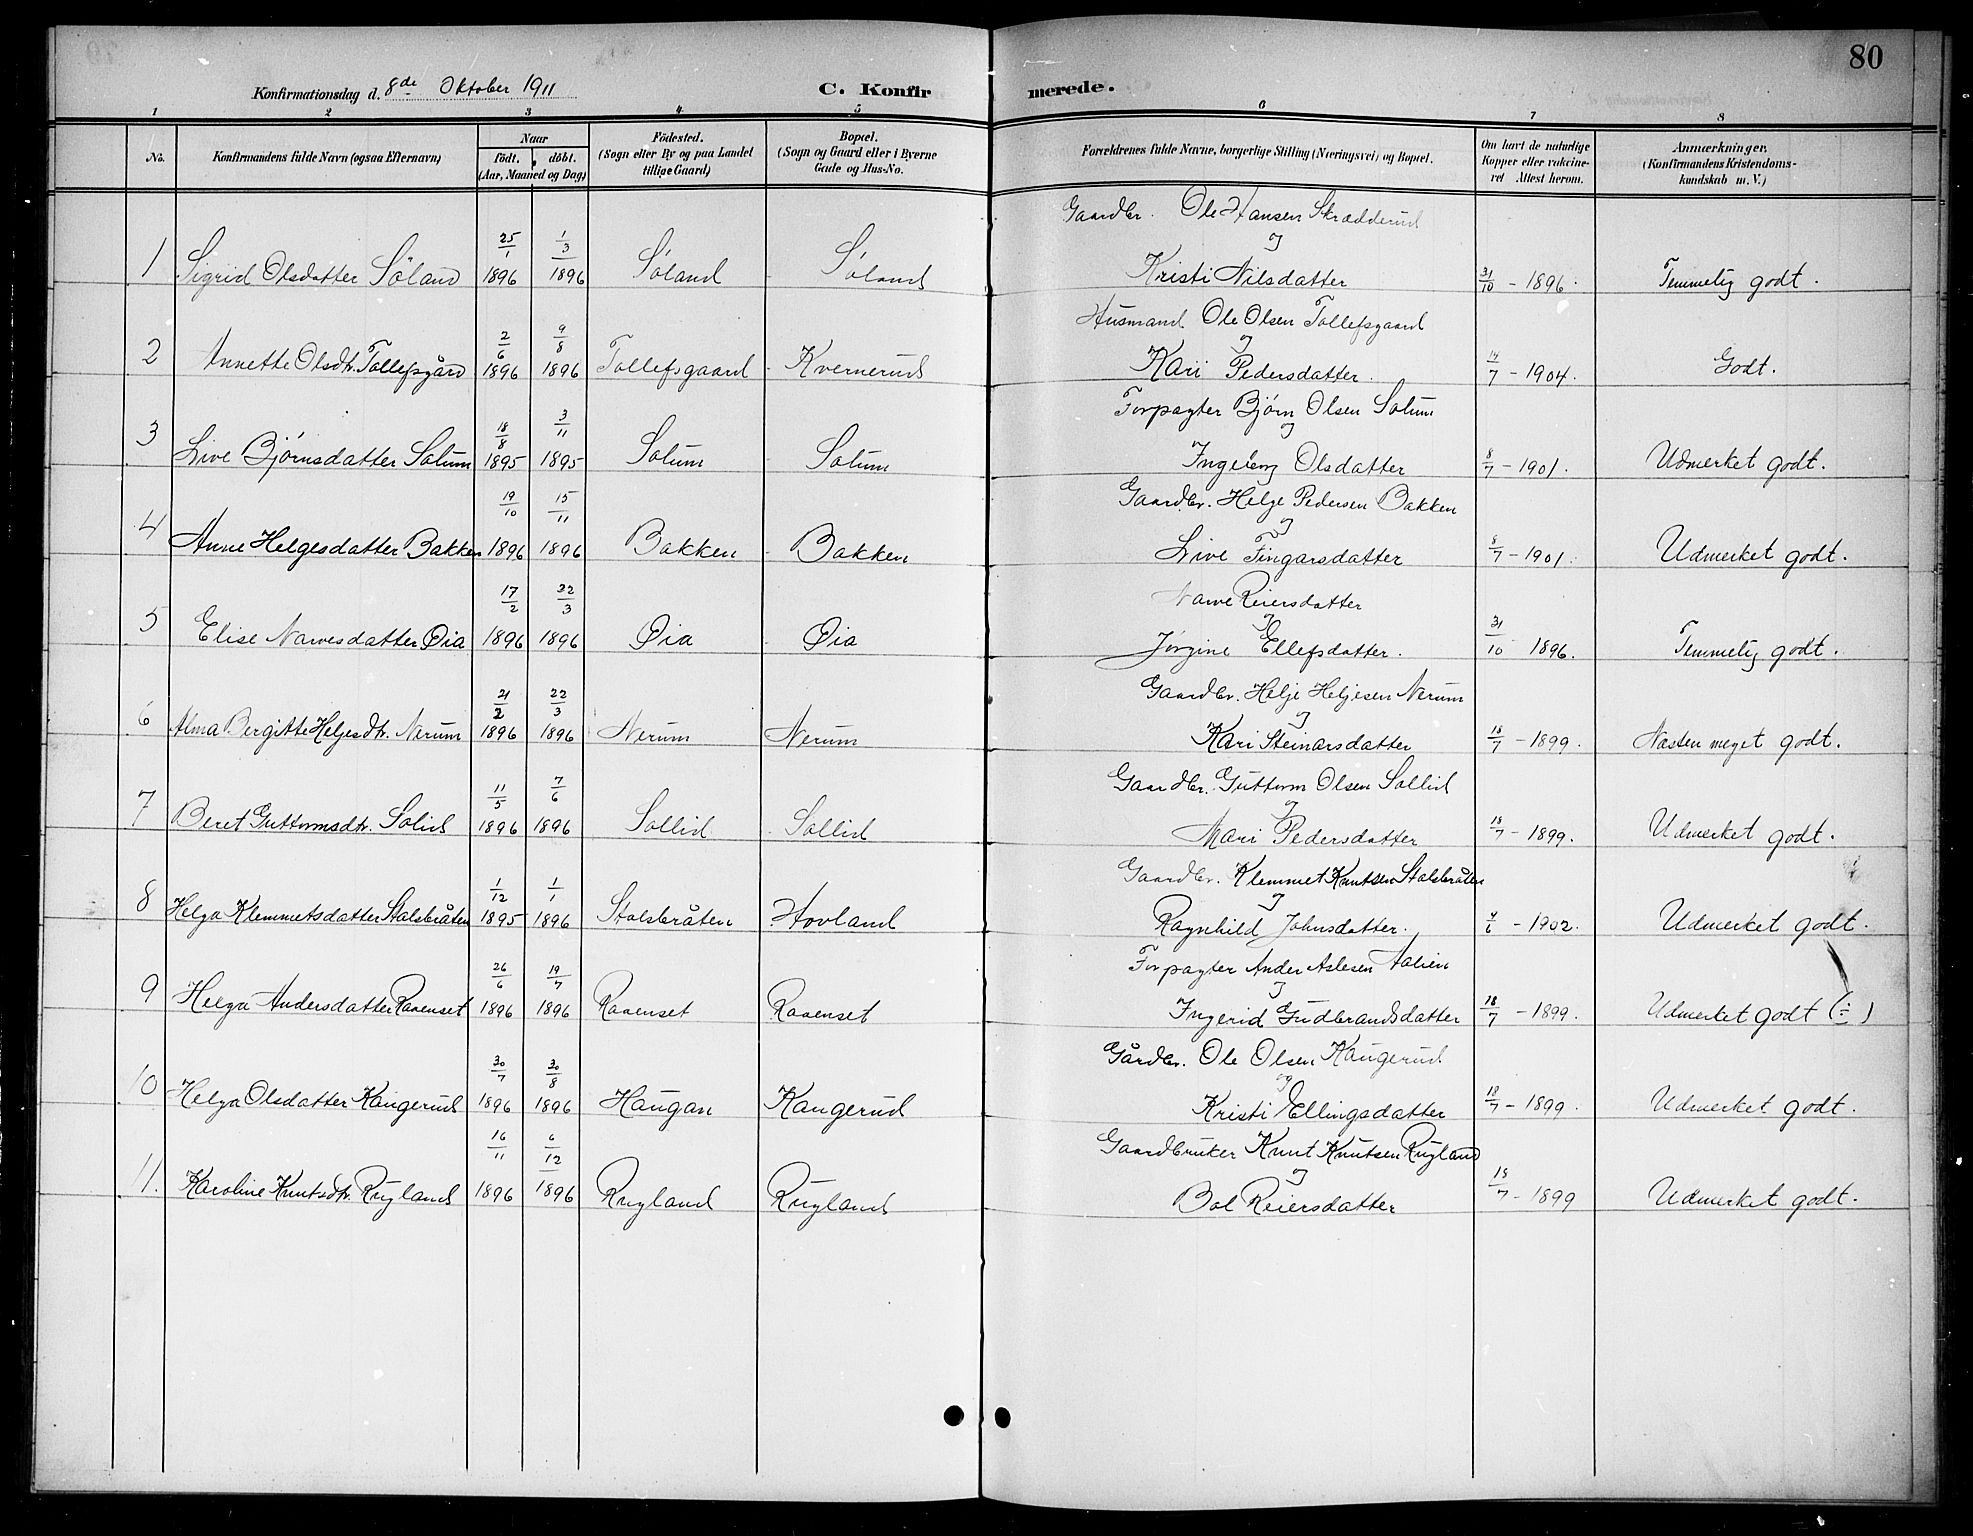 80
Konfirmationsdag d. 8de Oktober 1911
C. Konfirmerede.
1 2 3 4 5 6 7 8
No.
Konfirmandens fulde Navn (ogsaa Efternavn)
Naar
födt. döbt.
(Aar, Maaned og Dag)
Födested.
(Sogn eller By og paa Landet
tillige Gaard)
Bopæl.
(Sogn og Gaard eller i Byerne
Gade og Hus-No.
Forældrenes fulde Navne, borgerlige Stilling (Næringsvei) og Bopæl.
Om havt de naturlige
Kopper eller vakcine-
ret Attest herom.
Anmærkninger.
(Konfirmandens Kristendoms-
kundskab m. V.)
Gaardbr. Ole Hansen Skrædderud
og
1 Sigrid Olsdatter Söland 25/1 1896 1/3 1896 Söland Söland Kristi Nilsdatter 31/10 - 1896. Temmelig godt.
Husmand Ole Olsen Tollefsgaard
og
2 Annette Olsdtr. Tollefsgård 2/6 1896 9/8 1896 Tollefsgaard Kvernerud Kari Pedersdatter. 14/7 - 1904. Godt.
Forpagter Bjørn Olsen Solum
og
3 Live Bjørnsdatter Solum 18/8 1895 3/11 1895 Solum Solum Ingeborg Olsdatter 8/7 - 1901. Udmerket godt.
Gaardbr. Helge Pedersen Bakken
og
4 Anne Helgesdatter Bakken 19/10 1896 15/11 1896 Bakken Bakken Live Fingarsdatter 8/7 - 1901. Udmerket godt.
Narve Reiersdatter
og
5 Elise Narvesdatter Øia 17/2 1896 22/3 1896 Øia Øia Jørgine Ellefsdatter. 31/10 1896. Temmelig godt.
Gaardbr. Helje Heljesen Nerum
og
6 Alma Bergitte Heljesdtr. Nerum 21/2 1896 22/3 1896 Nerum Nerum Kari Steinarsdatter 18/7 - 1899. Næsten meget godt.
Gaardbr. Guttorm Olsen Sollid
og
7 Beret Guttormsdtr. Solid 11/5 1896 7/6 1896 Sollid Sollid Mari Pedersdatter 18/7 - 1899. Udmerket godt.
Gaardbr. Klemmet Knutsen Stalsbråten
og
8 Helga Klemmetsdatter Stalsbråten 1/12 1895 1/1 1896 Stalsbråten Hovland Ragnhild Johnsdatter. 4/6 - 1902. Udmerket godt.
Forpagter Ander Aslesen Aalien
og
9 Helga Andersdatter Raaenset 26/6 1896 19/7 1896 Raaenset Raaenset Ingerid Gudbrandsdatter 18/7 - 1899. Udmerket godt (÷)
Gårdbr. Ole Olsen Kaugerud
og
10 Helga Olsdatter Kaugerud 30/7 1896 30/8 1896 Haugan Kaugerud Kristi Ellingsdatter 18/7 - 1899. Udmerket godt.
Gaardbruker Knut Knutsen Rugland
og
11. Karoline Knutsdtr. Rugland 16/11 1896 6/12 1896 Rugland Rugland Bol Reiersdatter 18/7 - 1899 Udmerket godt.